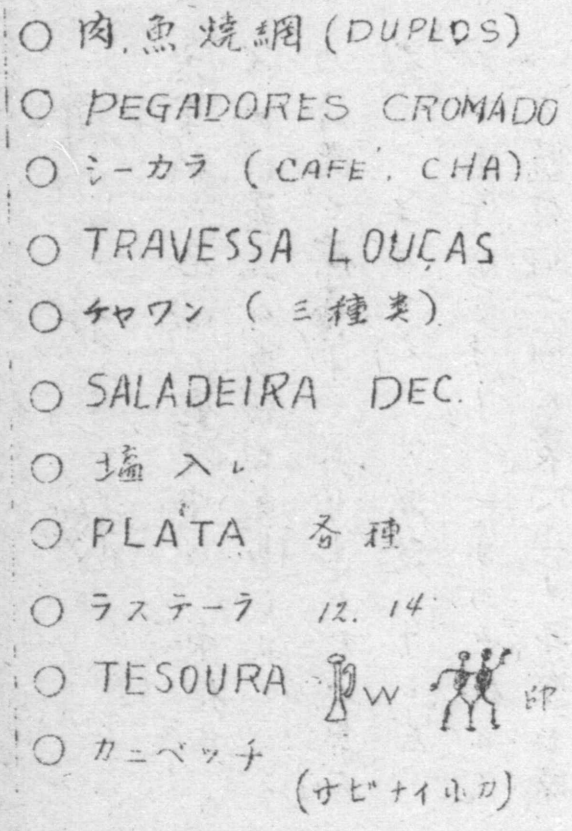 ○ 肉.魚焼網 (DUPLOS)
○ PEGADORES CROMADO
○ シーカラ (CAFÉ. CHA)
○ TRAVESSA LOUÇAS
○ チャワン (三種类)
○ SALADEIRA DEC.
○ 塩入レ
○ PLATA 各種
○ ラステーラ 12. 14
○ TESOURA W 印
○ カニベッチ
(サビナイ小刀)